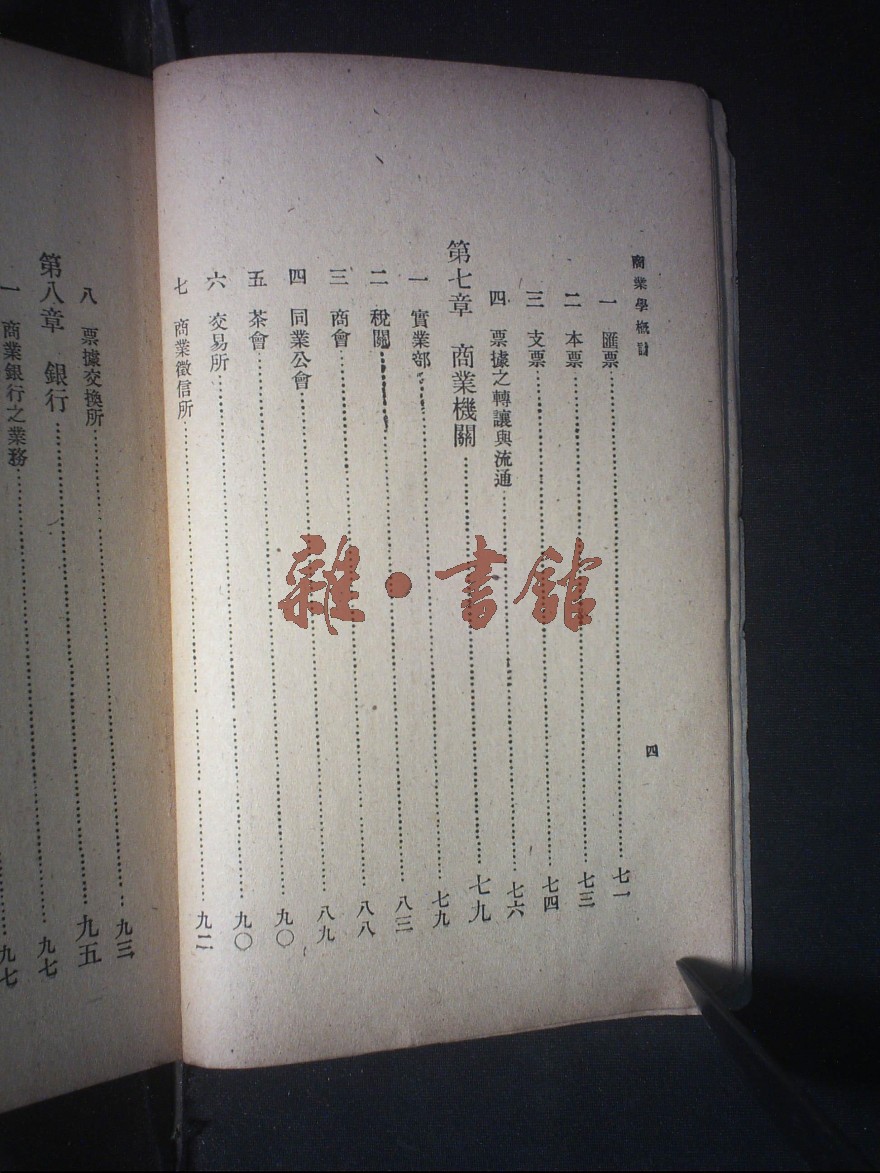 商業學概論
四
一 匯票 七一
二 本票 七三
三 支票 七四
四 票據之轉讓與流通 七六
第七章 商業機關 七九
一 實業部 七九
二 稅關 八三
三 商會 八八
四 同業公會 八九
五 茶會 九〇
六 交易所 九〇
七 商業徵信所 九二
八 票據交換所 九三
第八章 銀行 九五
一 商業銀行之業務 九七
九七
雜·書館